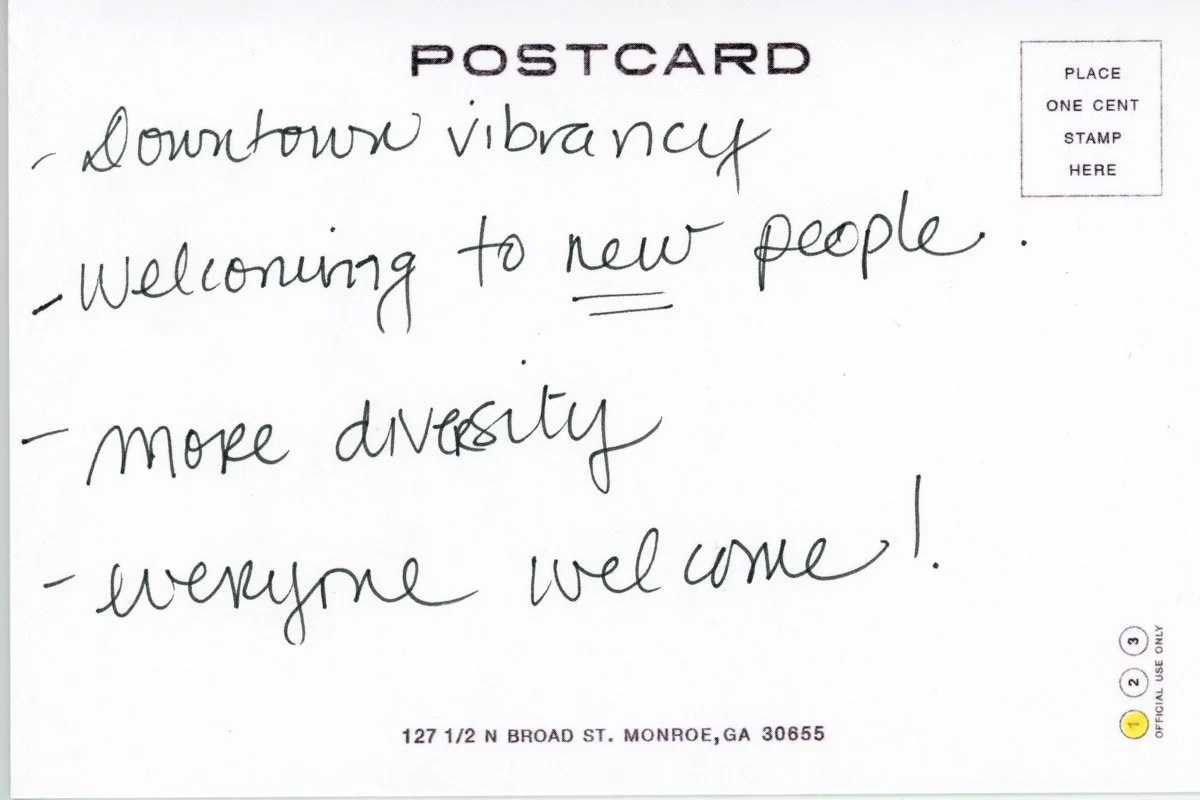 POSTCARD
PLACE
ONE CENT
STAMP
HERE
- Downtown vibrancy
- Welcoming to new people.
- more diversity
- everyone welcome!
127 1/2 N BROAD ST. MONROE, GA 30655
1 2 3
OFFICIAL USE ONLY